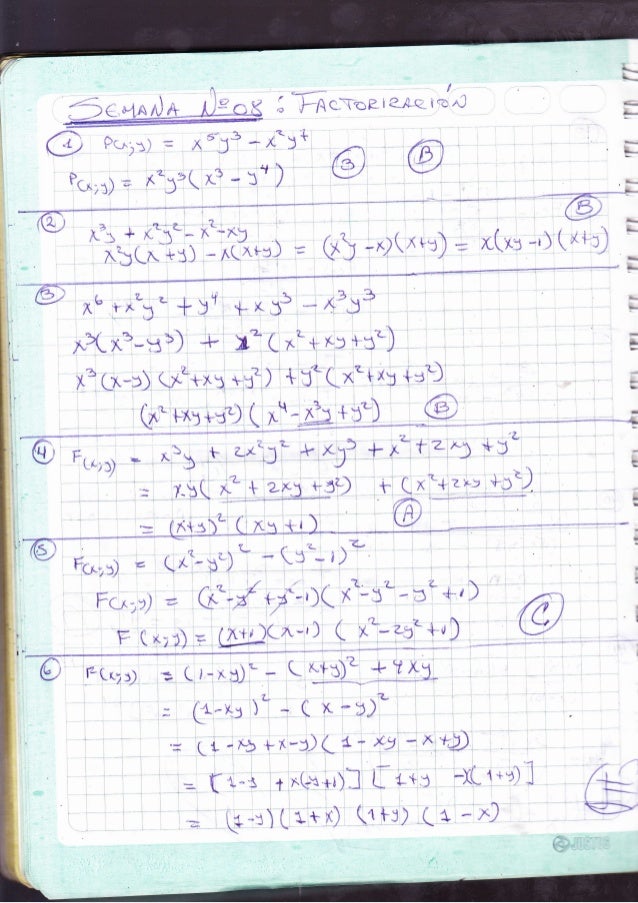 SEMANA Nº 08 : FACTORIZACIÓN
① P(x;y) = x⁵y³ – x²y⁷
P(x;y) = x²y³(x³ – y⁴) ③ Ⓑ
② x³y + x²y² – x² – xy Ⓑ
x²y(x+y) – x(x+y) = (x²y – x)(x+y) = x(xy–1)(x+y)
③ x⁶ + x²y² + y⁴ + xy³ – x³y³
x³(x³–y³) + y²(x²+xy+y²)
x³(x–y)(x²+xy+y²) + y²(x²+xy+y²)
(x²+xy+y²)(x⁴–x³y+y²) Ⓑ
④ F(x;y) = x³y + 2x²y² + xy³ + x² + 2xy + y²
= xy(x² + 2xy + y²) + (x²+2xy+y²)
= (x+y)²(xy+1) Ⓐ
⑤ F(x;y) = (x²–y²)² – (y²–1)²
F(x;y) = (x²–y²+y²–1)(x²–y²–y²+1)
F(x;y) = (x+1)(x–1)(x²–2y²+1) Ⓒ
⑥ F(x;y) = (1–xy)² – (x+y)² + 4xy
= (1–xy)² – (x–y)²
= (1–xy+x–y)(1–xy–x+y)
= [1–y + x(–y+1)][1+y –x(1+y)]
= (1–y)(1+x)(1+y)(1–x)
JUSTUS